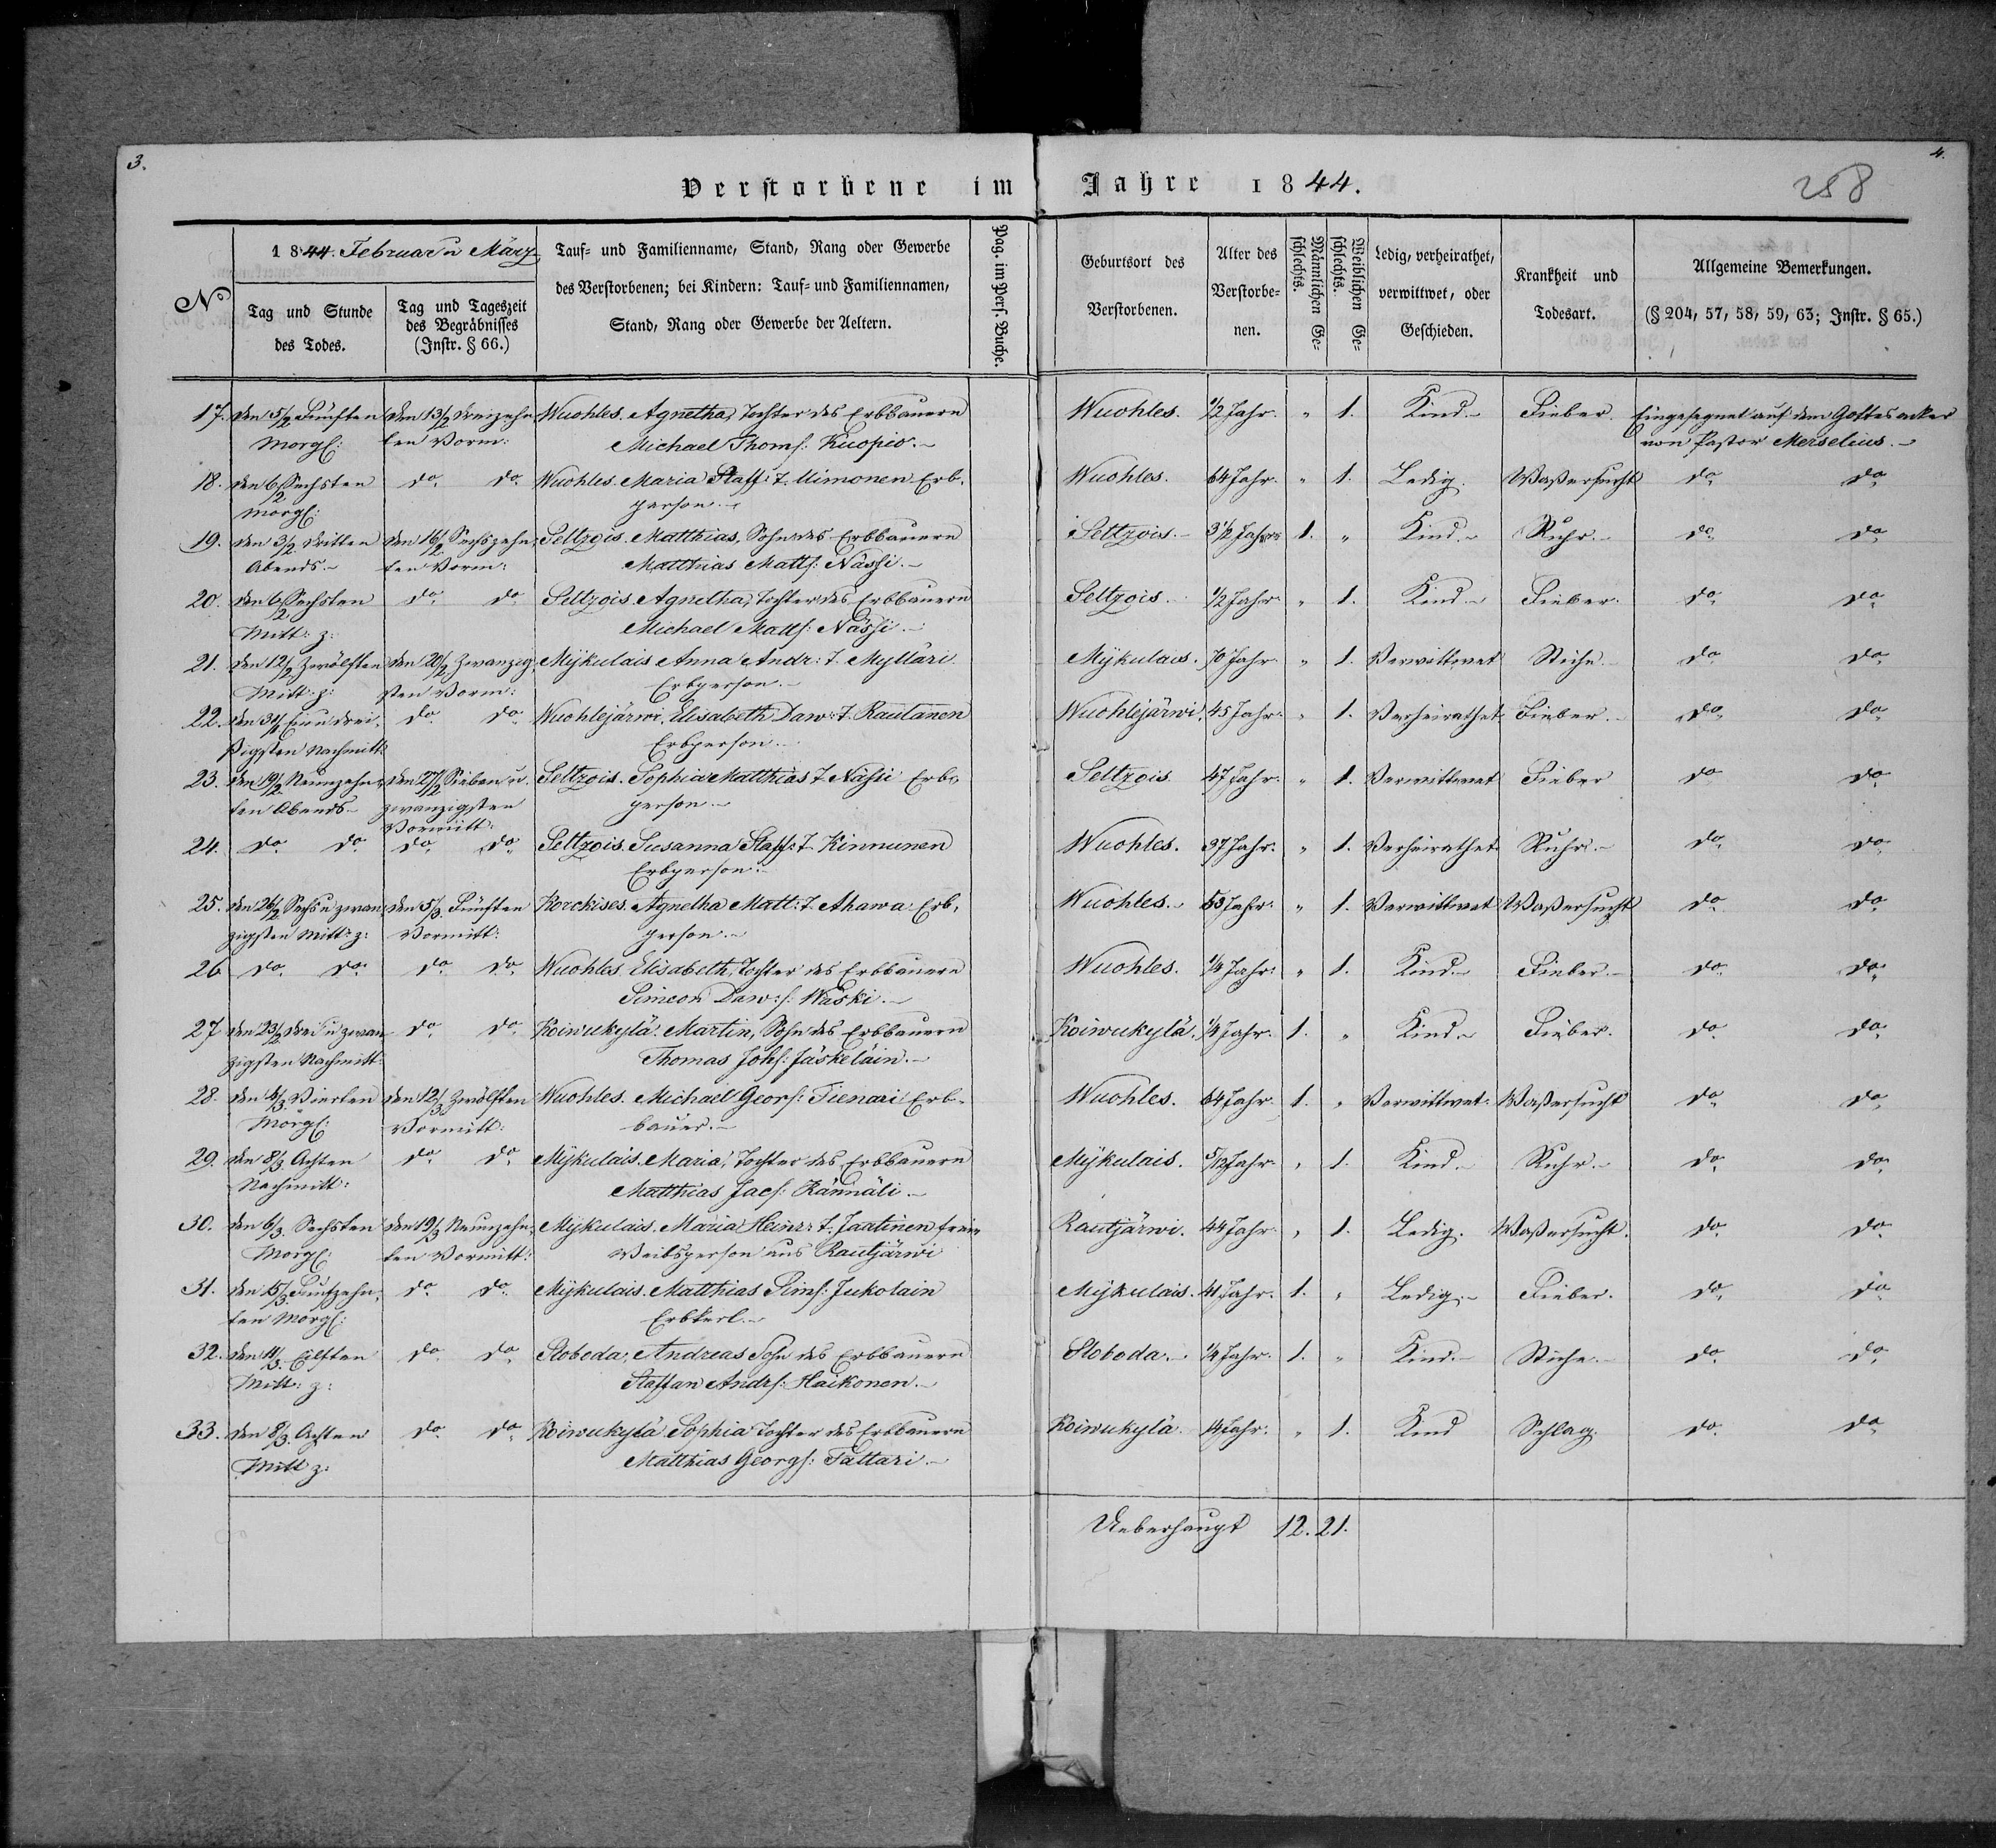 3.
4.
258
Verstorbene im Jahre 1844.
No
1844. Februar u März
Tag und Stunde des Todes.
Tag und Tageszeit des Begräbnisses (Instr. § 66.)
Tauf- und Familienname, Stand, Rang oder Gewerbe des Verstorbenen; bei Kindern: Tauf- und Familiennamen, Stand, Rang oder Gewerbe der Aeltern.
Pag. im Pers. Buche.
Geburtsort des Verstorbenen.
Alter des Verstorbenen.
Männlichen Geschlechts.
Weiblichen Geschlechts.
Ledig, verheirathet, verwittwet, oder Geschieden.
Krankheit und Todesart.
Allgemeine Bemerkungen.
(§ 204, 57, 58, 59, 63; Instr. § 65.)
17. den 5/2 Fünften den 13/2 dreizehn Wuohles. Agnetha, Tochter des Erbbauern Wuohles. 1/2 Jahr. " 1. Kind. Fieber. Eingesegnet auf dem Gottesacker
Morgs: ten Vorm: Michael Thoms: Kuopio. von Pastor Merselius.
18. den 6/2 Sechsten do do Wuohles. Maria Staff: t. Uimonen Erb- Wuohles. 64 Jahr. " 1. Ledig. Waßersucht do do
Morgs: person.
19. den 3/2 dritten den 16/2 Sechszehn- Seltzois. Matthias, Sohn des Erbbauern Seltzois. 3 1/2 Jahr 1. " Kind. Ruhr. do do
Abends. ten Vorm: Matthias Matts: Nässi.
20. den 6/2 Sechsten do do Seltzois. Agnetha, Tochter des Erbbauern Seltzois. 1/2 Jahr. " 1. Kind. Fieber. do do
Mitt: z: Michael Matts: Nässi.
21. den 12/2 Zwölften den 20/2 Zwanzig- Mÿkulais Anna Andr: t. Mylläri Mÿkulais. 70 Jahr " 1. Verwittwet Stiche. do do
Mitt: z: sten Vorm: Erbperson.
22. den 31/1 Ein u drei- do do Wuohlejärwi. Elisabeth Daw: t. Rautanen Wuohlejärwi. 45 Jahr. " 1. Verheirathet Fieber. do do
ßigsten Nachmitt: Erbperson.
23. den 19/2 Neunzehn- den 27/2 Sieben u. Seltzois. Sophia Matthias t Nässi Erb- Seltzois 47 Jahr. " 1. Verwittwet Fieber do do
ten Abends zwanzigsten person.
Vormitt:
24. do do do do Seltzois. Susanna Staff: t. Kinnunen Wuohles. 37 Jahr. " 1. Verheirathet Ruhr. do do
Erbperson.
25. den 26/2 Sechs u zwan- den 5/3. Fünften Korckises. Agnetha Matt: t. Ahawa Erb- Wuohles. Jahr. " 1. Verwittwet Waßersucht do do
zigsten Mitt: z: Vormitt: person.
26 do do do do Wuohles. Elisabeth, Tochter des Erbbauern Wuohles. 1/4 Jahr. " 1. Kind. Fieber. do do
Simeon Daw: s: Wäski.
27 den 23/2 drei u zwan- do do Koiwukylä. Martin, Sohn des Erbbauern Koiwukylä. 1/4 Jahr. 1. " Kind. Fieber. do do
zigsten Nachmitt: Thomas Johs: Jäskeläin.
28. den 4/3. Vierten den 12/3. Zwölften Wuohles. Michael Geors: Tienari Erb- Wuohles. 64 Jahr. 1. " Verwittwet. Waßersucht do do
Morgs: Vormitt: bauer.
29. den 8/3 Achten do do Mÿkulais. Maria, Tochter des Erbbauern Mÿkulais. 5/12 Jahr. " 1. Kind. Ruhr. do do
Nachmitt: Matthias Jacs: Kännäli.
30. den 6/3. Sechsten den 19/3 Neunzehn- Mÿkulais. Maria Heinr: t. Jaatinen freie Rautjärwi. 44 Jahr. " 1. Ledig. Waßersucht. do do
Morgs: ten Vormitt: Weibsperson aus Rautjärwi
31. den 15/3. Funfzehn- do do Mÿkulais. Matthias Sims: Jukolain Mÿkulais. 41 Jahr. 1. " Ledig. Fieber. do do
ten Morgs: Erbkerl.
32. den 11/3. Eilften do do Sloboda. Andreas Sohn des Erbbauern Sloboda. 1/4 Jahr. 1. " Kind. Stiche. do do
Mitt: z: Staffan Andrs: Haikonen.
33. den 8/3. Achten do do Koiwukylä Sophia Tochter des Erbbauern Koiwukylä. Jahr. " 1. Kind Schlag. do do
Mitt z: Matthias Georgs: Tattari.
Ueberhaupt 12. 21.